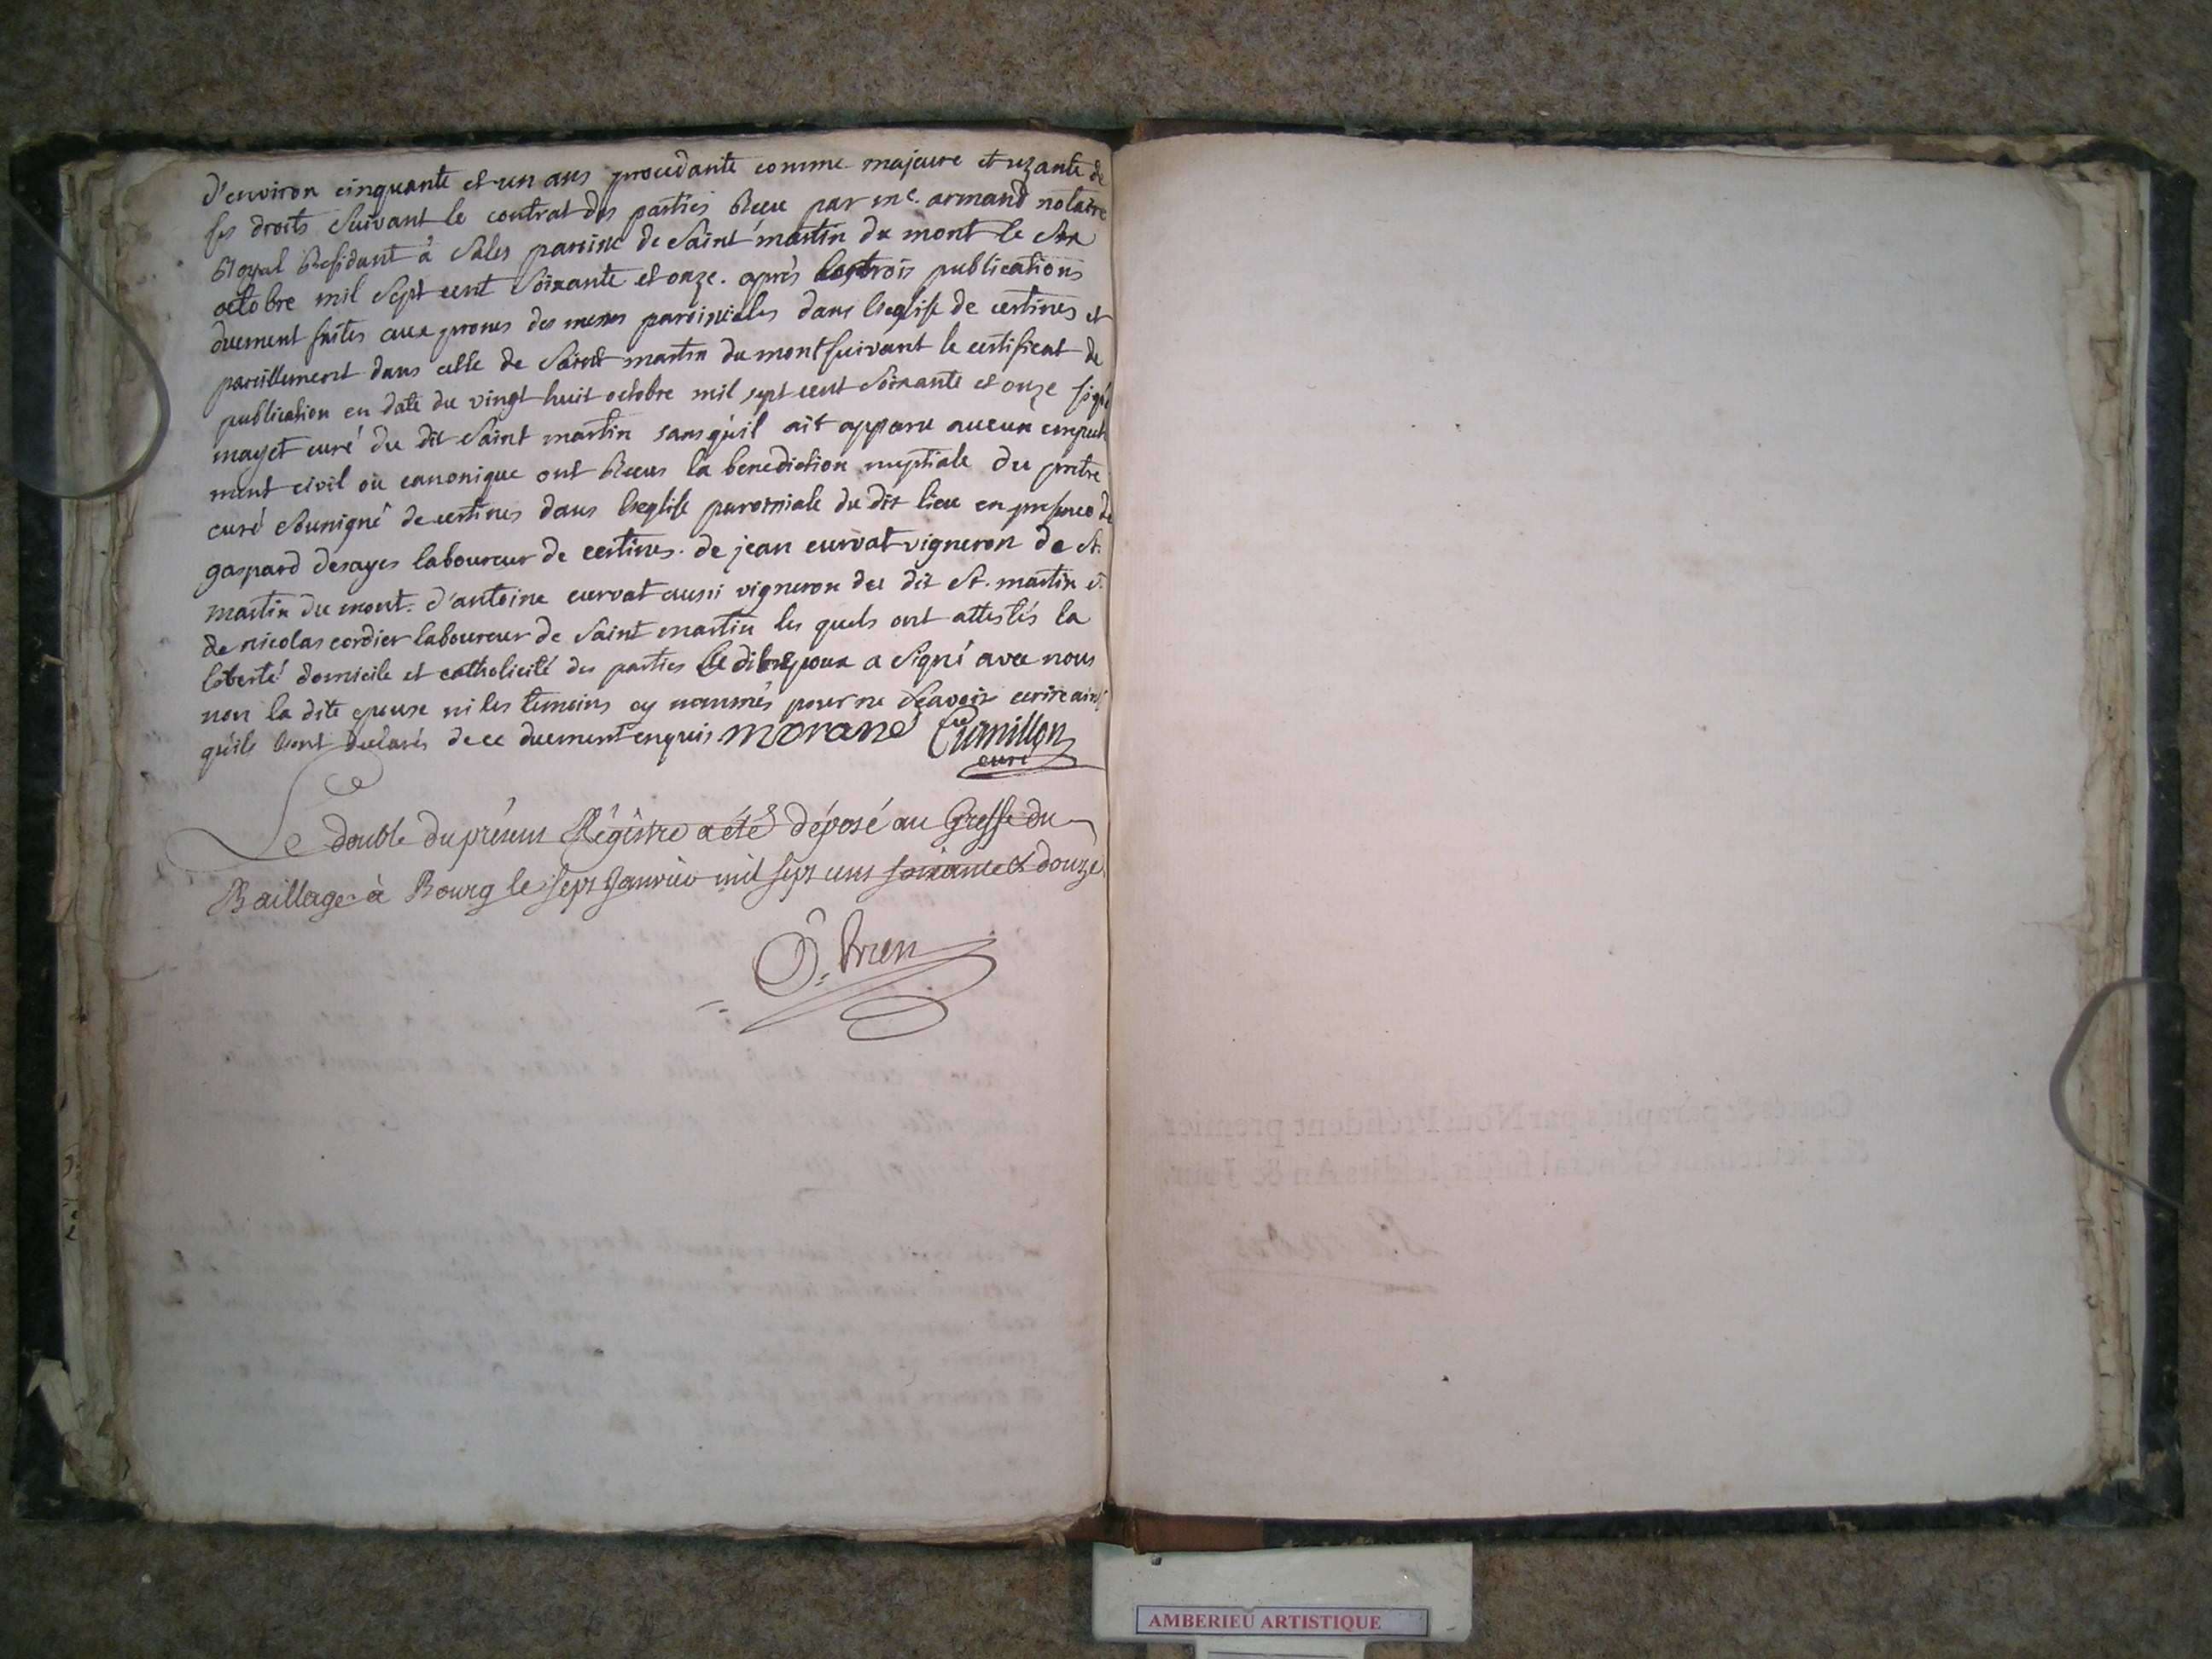 d'environ cinquante et un ans procedante comme majeure et uzante de
ses droits suivant le contrat des parties Receu par me. armand notaire
Royal Residant à Sales paroisse de Saint martin du mont le six
octobre mil sept cent soixante et onze. après les trois publications
duement faites aux prones des messes paroissiales dans l'eglise de certines et
pareillement dans celle de Saint martin du mont suivant le certificat de
publication en date du vingt huit octobre mil sept cent soixante et onze signé
mayet curé du dit Saint martin sans qu'il ait apparu aucun empech
ment civil ou canonique ont Receus la benediction nuptiale du pretre
curé soussigné de certines dans l'eglise paroissiale du dit lieu en presence de
gaspard desayes laboureur de certines. de jean curvat vigneron de st.
martin du mont. d'antoine curvat aussi vigneron du dit st. martin et
de nicolas cordier laboureur de Saint martin les quels ont attestés la
liberté domicile et catholicité des parties le dit epoux a signé avec nous
non la dite epouse ni les temoins cy nommés pour ne sçavoir ecrire ainsi
qu'ils l'ont declarés de ce duement enquis morané Cumillon
curé
Le double du présent Régistre a été déposé au Greffe du
Baillage à Bourg le sept Janvier mil sept cent soixante & douze
O. brien
Cottés & paraphés par Nous Président premier
& Lieutenant Général susdit, lesdits An & Jour.
AMBERIEU ARTISTIQUE